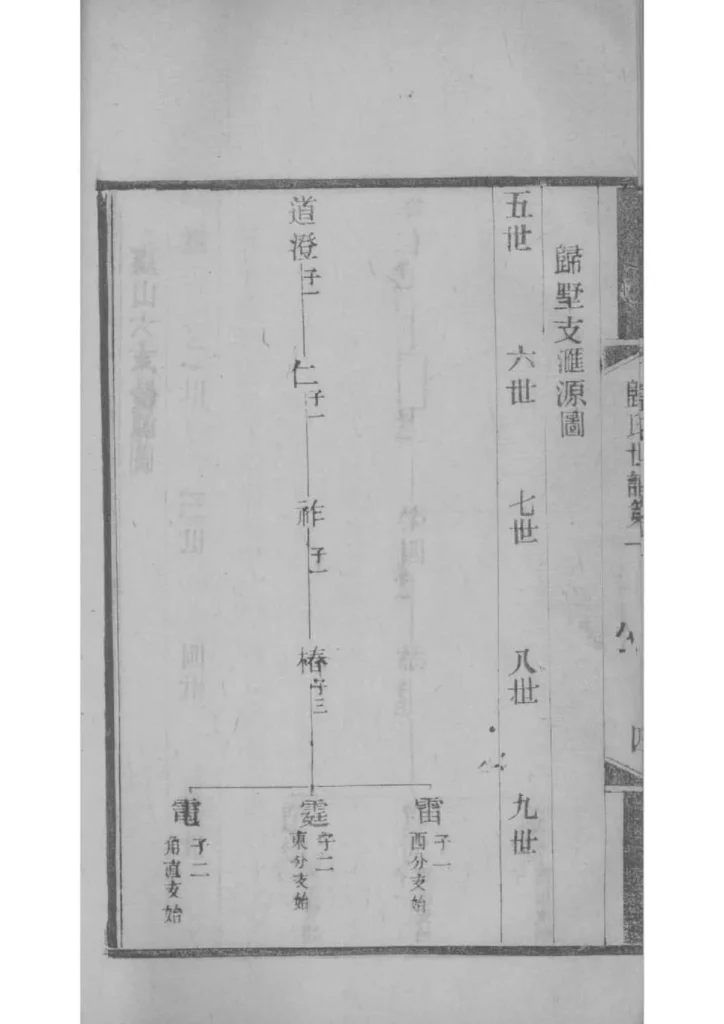 歸氏世譜第一
四
歸墅支滙源圖
五世
六世
七世
八世
九世
道澄 子一
仁 子一
祚 子一
椿 子三
雷 子一
西分支始
霆 子二
東分支始
電 子二
角直支始